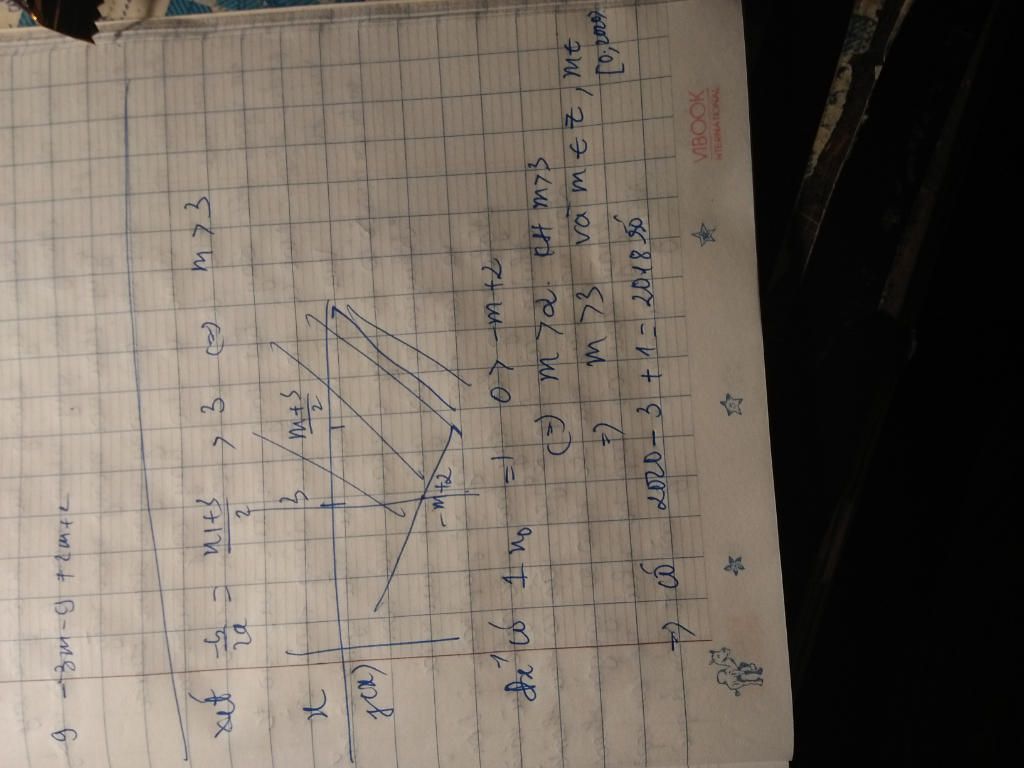 9 - 3m - 9 + 2m + 2
xét -b/2a = m+3/2 > 3 (=) m > 3
x 3 m+3/2
f(x) -m+2
có 1 n₀ =) 0 > -m+2
(=) m > 2. KH m > 3
=) m > 3 và m ∈ Z, m ∈
=) có 2020 - 3 + 1 = 2018 số
VIBOOK
INTERNATIONAL